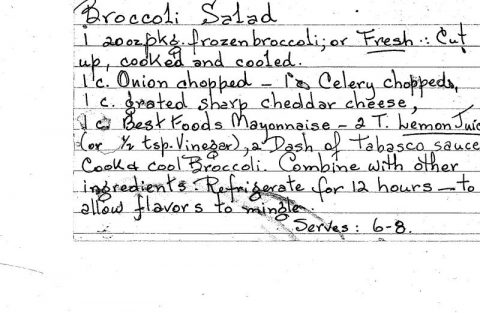 Broccoli Salad
1 20oz pkg. frozen broccoli; or Fresh :: Cut
up, cooked and cooled.
1 c. Onion chopped - 1 c Celery chopped,
1 c. grated sharp cheddar cheese,
1 c Best Foods Mayonnaise - 2 T. Lemon Juic
(or ½ tsp. Vinegar), a Dash of Tabasco sauce
Cook & cool Broccoli. Combine with other
ingredients. Refrigerate for 12 hours - to
allow flavors to mingle.
Serves: 6-8.